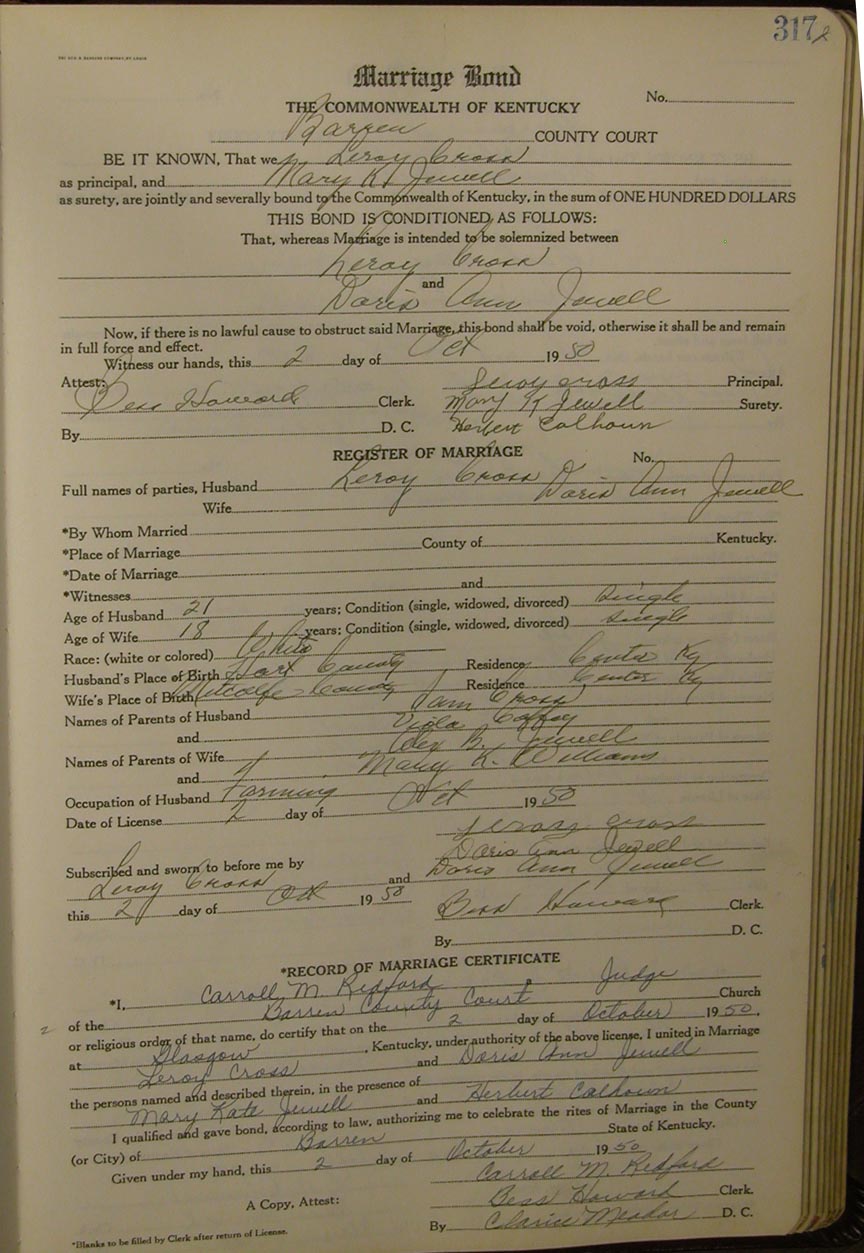 317
THE GEO. D. BARNARD COMPANY, ST. LOUIS
Marriage Bond
THE COMMONWEALTH OF KENTUCKY
No.
Barren COUNTY COURT
BE IT KNOWN, That we Leroy Cross
as principal, and Mary K. Jewell
as surety, are jointly and severally bound to the Commonwealth of Kentucky, in the sum of ONE HUNDRED DOLLARS
THIS BOND IS CONDITIONED AS FOLLOWS:
That, whereas Marriage is intended to be solemnized between
Leroy Cross
and
Doris Ann Jewell
Now, if there is no lawful cause to obstruct said Marriage, this bond shall be void, otherwise it shall be and remain
in full force and effect.
Witness our hands, this 2 day of Oct 1950
Attest: Leroy Cross Principal.
Bess Howard Clerk. Mary K Jewell Surety.
By D. C. Herbert Calhoun
REGISTER OF MARRIAGE No.
Full names of parties, Husband Leroy Cross
Wife Doris Ann Jewell
*By Whom Married
*Place of Marriage County of Kentucky.
*Date of Marriage
*Witnesses and
Age of Husband 21 years; Condition (single, widowed, divorced) single
Age of Wife 18 years; Condition (single, widowed, divorced) single
Race: (white or colored) White
Husband's Place of Birth Hart County Residence Center Ky
Wife's Place of Birth Metcalfe County Residence Center Ky
Names of Parents of Husband Sam Cross
and Viola Coffey
Names of Parents of Wife Alex B. Jewell
and Mary K. Williams
Occupation of Husband Farming
Date of License 2 day of Oct 1950
Leroy Cross
Doris Ann Jewell
Subscribed and sworn to before me by
Leroy Cross and Doris Ann Jewell
this 2 day of Oct 1950
Bess Howard Clerk.
By D. C.
*RECORD OF MARRIAGE CERTIFICATE
*I, Carroll M. Redford Judge
of the Barren County Court Church
or religious order of that name, do certify that on the 2 day of October 1950,
at Glasgow, Kentucky, under authority of the above license, I united in Marriage
Leroy Cross and Doris Ann Jewell
the persons named and described therein, in the presence of
Mary Kate Jewell and Herbert Calhoun
I qualified and gave bond, according to law, authorizing me to celebrate the rites of Marriage in the County
(or City) of Barren State of Kentucky.
Given under my hand, this 2 day of October 1950
Carroll M. Redford
A Copy, Attest: Bess Howard Clerk.
By Clarice Meador D. C.
*Blanks to be filled by Clerk after return of License.